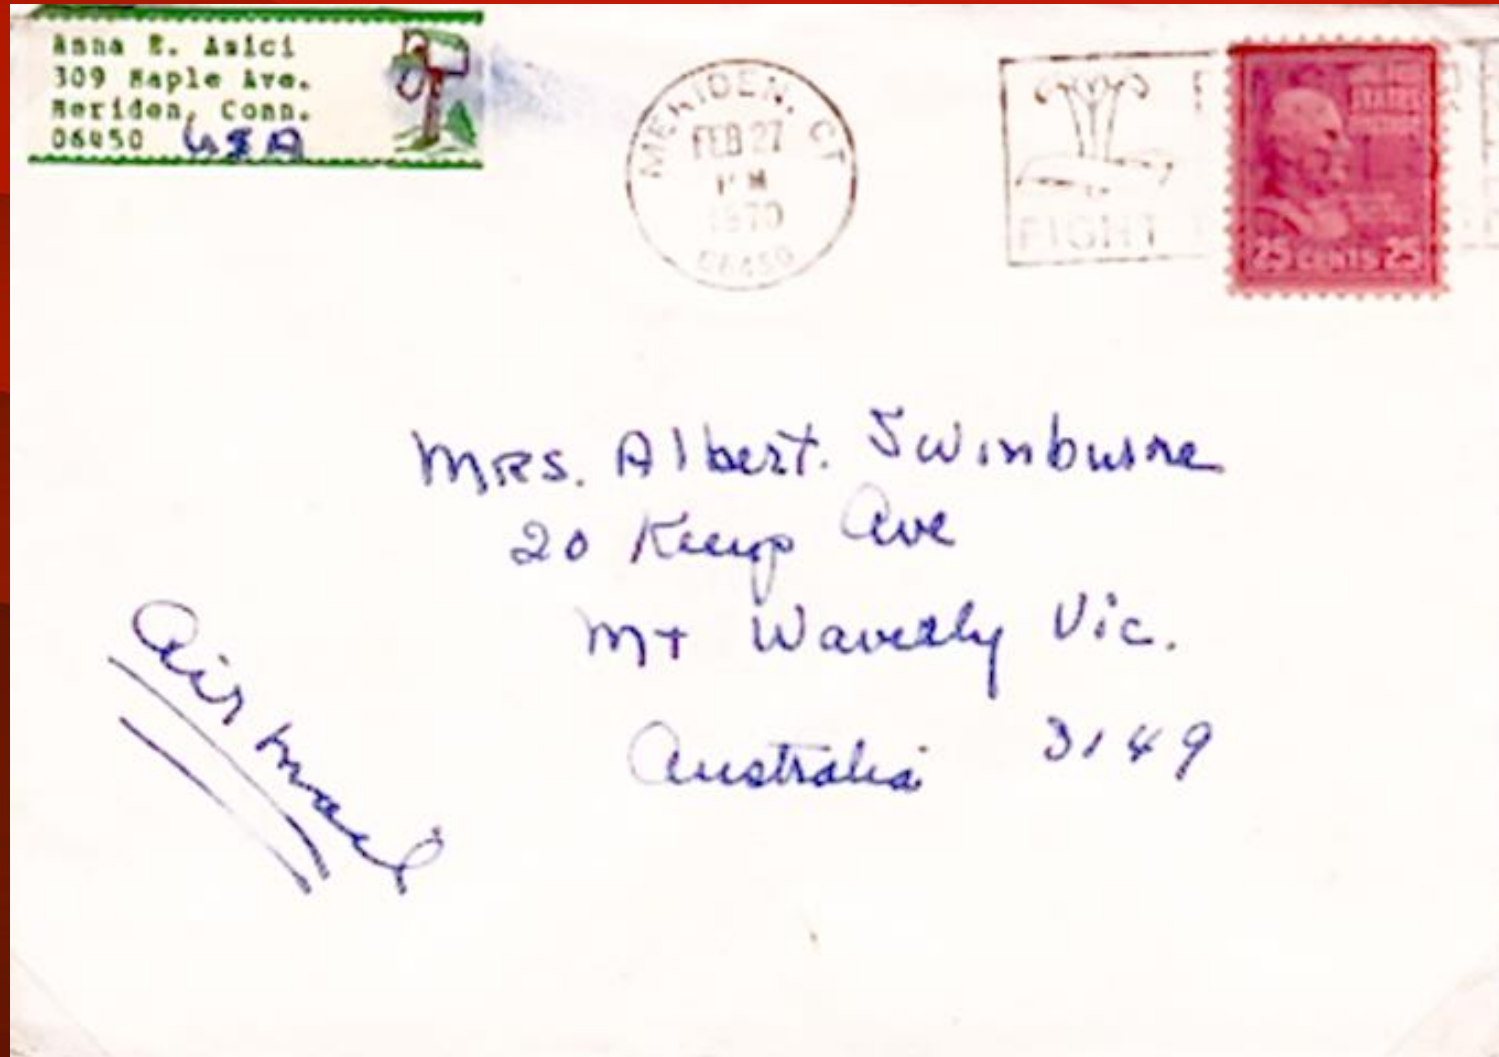 Anna E. Asici
309 Maple Ave.
Meriden, Conn.
06450 USA
MERIDEN, CT
FEB 27
PM
1970
06450
FIGHT
STATES
25 CENTS 25
Mrs. Albert. Swinburne
20 Ave
Mt Waverly Vic.
Australia 3149
Air Mail